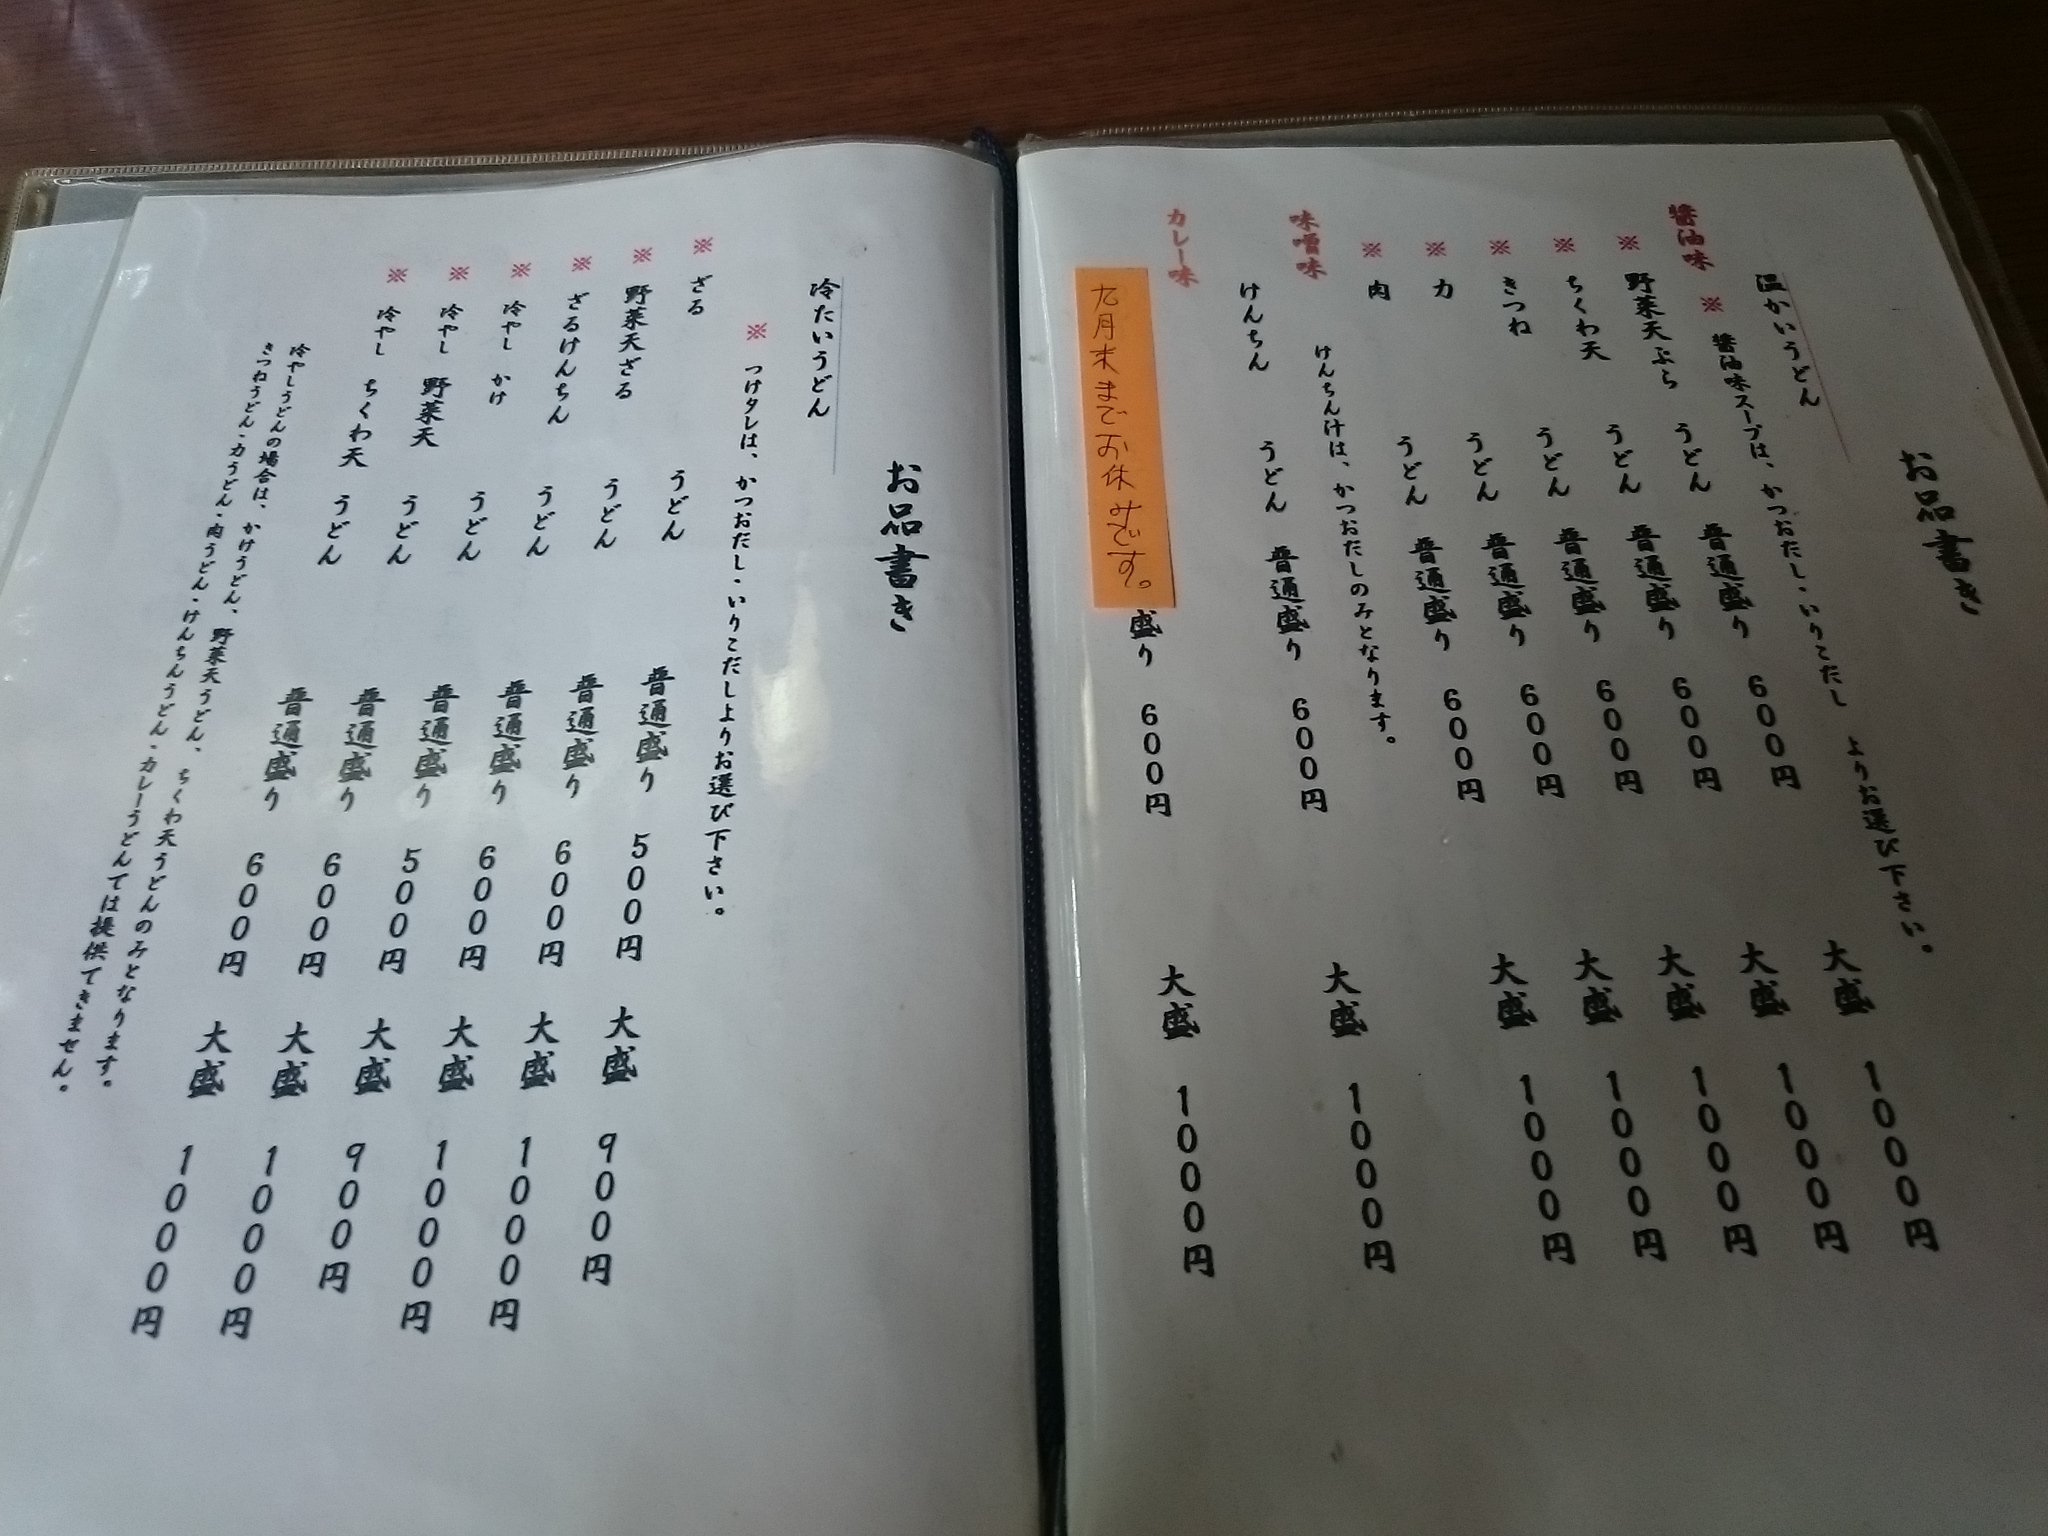 お品書き
温かいうどん
※ 醤油味スープは、かつおだし・いりこだし よりお選び下さい。
醤油味
※ 野菜天ぷら うどん 普通盛り 600円 大盛 1000円
※ ちくわ天 うどん 普通盛り 600円 大盛 1000円
※ きつね うどん 普通盛り 600円 大盛 1000円
※ 力 うどん 普通盛り 600円 大盛 1000円
※ 肉 うどん 普通盛り 600円 大盛 1000円
味噌味 けんちん汁は、かつおだしのみとなります。
けんちん うどん 普通盛り 600円 大盛 1000円
カレー味
九月末までお休みです。
盛り 600円 大盛 1000円
お品書き
冷たいうどん
※ つけタレは、かつおだし・いりこだしよりお選び下さい。
※ ざる うどん 普通盛り 500円 大盛 900円
※ 野菜天ざる うどん 普通盛り 600円 大盛 1000円
※ ざるけんちん うどん 普通盛り 600円 大盛 1000円
※ 冷やし かけ うどん 普通盛り 500円 大盛 900円
※ 冷やし 野菜天 うどん 普通盛り 600円 大盛 1000円
※ 冷やし ちくわ天 うどん 普通盛り 600円 大盛 1000円
冷やしうどんの場合は、かけうどん、野菜天うどん、ちくわ天うどんのみとなります。
きつねうどん・力うどん・肉うどん・けんちんうどん・カレーうどんでは提供できません。